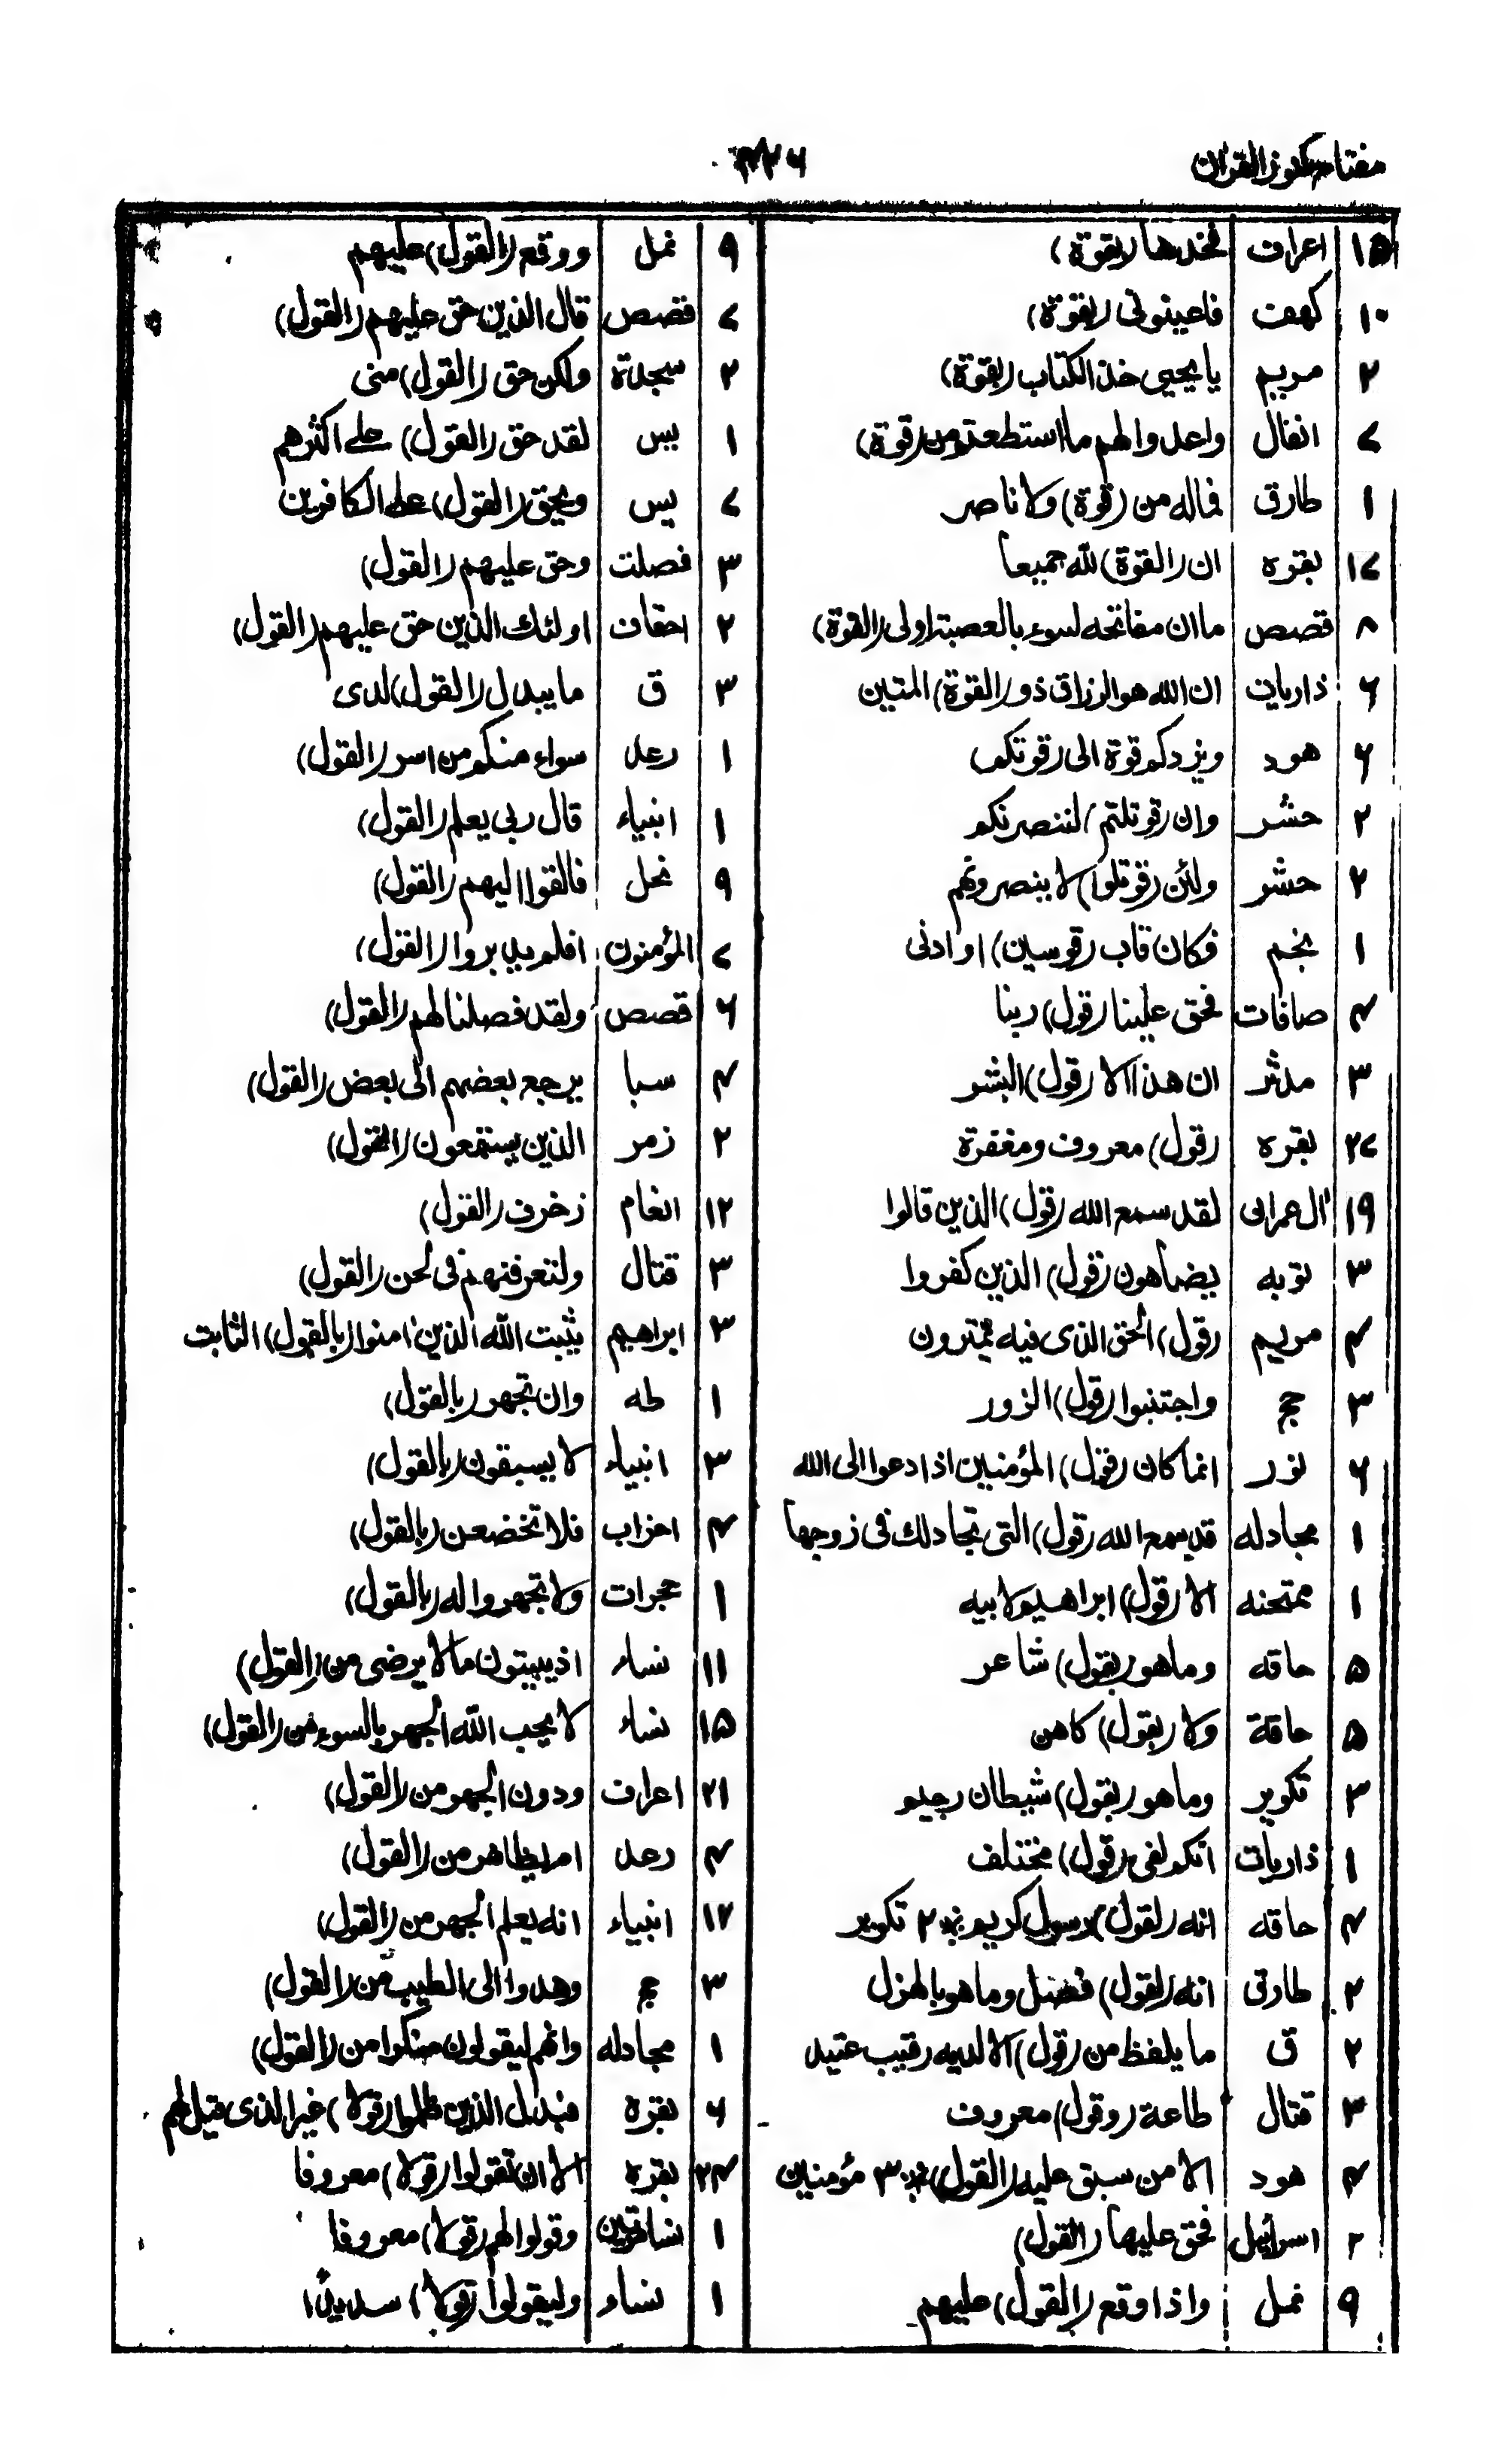 مفتاح كنوز القران
١٥ اعراف فخذها (بقوة)
١٠ كهف فاعينونى (بقوة)
٢ مريم يا يحيى خذ الكتاب (بقوة)
٧ انفال واعدوا لهم ما استطعتم من (قوة)
١ طارق فماله من (قوة) ولا ناصر
١٧ بقره ان (القوة) لله جميعا
٨ قصص ما ان مفاتحه لتنوء بالعصبة اولى (القوة)
٦ ذاريات ان الله هو الرزاق ذو (القوة) المتين
٦ هود ويزدكم قوة الى (قوتكم)
٢ حشر وان (قوتلتم) لننصرنكم
٢ حشر ولئن (قوتلوا) لا ينصرونهم
١ نجم فكان قاب (قوسين) او ادنى
٤ صافات فحق علينا (قول) ربنا
٣ مدثر ان هذا الا (قول) البشر
٢٧ بقره (قول) معروف ومغفرة
١٩ ال عمران لقد سمع الله (قول) الذين قالوا
٣ توبه يضاهون (قول) الذين كفروا
٤ مريم (قول) الحق الذى فيه يمترون
٣ حج واجتنبوا (قول) الزور
٦ نور انما كان (قول) المؤمنين اذا دعوا الى الله
١ مجادله قد سمع الله (قول) التى تجادلك فى زوجها
١ ممتحنه الا (قول) ابراهيم لابيه
٥ حاقه وما هو (بقول) شاعر
٥ حاقة ولا (بقول) كاهن
٣ تكوير وما هو (بقول) شيطان رجيم
١ ذاريات انكم لفى (قول) مختلف
٤ حاقه انه (لقول) رسول كريم ٢ تكوير
٢ طارق انه (لقول) فصل وما هو بالهزل
٢ ق ما يلفظ من (قول) الا لديه رقيب عتيد
٣ قتال طاعة (وقول) معروف
٤ هود الا من سبق عليه (القول) ٣ مؤمنين
٢ اسرائيل فحق عليها (القول)
٩ نمل واذا وقع (القول) عليهم
٩ نمل ووقع (القول) عليهم
٧ قصص قال الذين حق عليهم (القول)
٢ سجدة ولكن حق (القول) منى
١ يس لقد حق (القول) على اكثرهم
٧ يس ويحق (القول) على الكافرين
٣ فصلت وحق عليهم (القول)
٢ احقاف اولئك الذين حق عليهم (القول)
٣ ق ما يبدل (القول) لدى
١ رعد سواء منكم من اسر (القول)
١ انبياء قال ربى يعلم (القول)
٩ نحل فالقوا اليهم (القول)
٧ المؤمنون افلم يدبروا (القول)
٦ قصص ولقد فصلنا لهم (القول)
٤ سبا يرجع بعضهم الى بعض (القول)
٢ زمر الذين يستمعون (القول)
١٢ انعام زخرف (القول)
٣ قتال ولتعرفنهم فى لحن (القول)
٣ ابراهيم يثبت الله الذين امنوا (بالقول) الثابت
١ طه وان تجهر (بالقول)
٣ انبياء لا يسبقون (بالقول)
٤ احزاب فلا تخضعن (بالقول)
١ حجرات ولا تجهروا له (بالقول)
١١ نساء اذ يبيتون ما لا يرضى من (القول)
١٥ نساء لا يحب الله الجهر بالسوء من (القول)
٢١ اعراف ودون الجهر من (القول)
٤ رعد ام بظاهر من (القول)
١٧ انبياء انه يعلم الجهر من (القول)
٣ حج وهدوا الى الطيب من (القول)
١ مجادله وانهم ليقولون منكرا من (القول)
٦ بقره فبدل الذين ظلموا (قولا) غير الذى قيل لهم
٢٤ بقره الا ان تقولوا (قولا) معروفا
١ نساء وقولوا لهم (قولا) معروفا
١ نساء وليقولوا (قولا) سديدًا